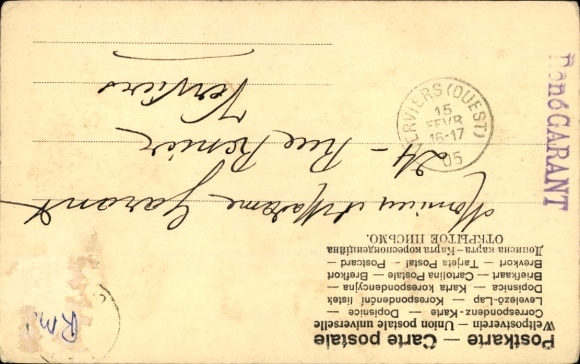 Postkarte — Carte postale
Weltpostverein — Union postale universelle
Correspondenz-Karte — Dopisnice
Levelező-Lap — Korespondenční listek
Dopisnica — Karta korespondencyjna
Briefkaart — Cartolina Postale — Brefkort
Brevkort — Tarjeta Postal — Postcard
Дописна карта — Карта кореспонденційна
ОТКРЫТОЕ ПИСЬМО.
Monsieur et Madame Garant
24 – Rue Renier
Verviers
VERVIERS (OUEST)
15
FEVR
16-17
05
René GARANT